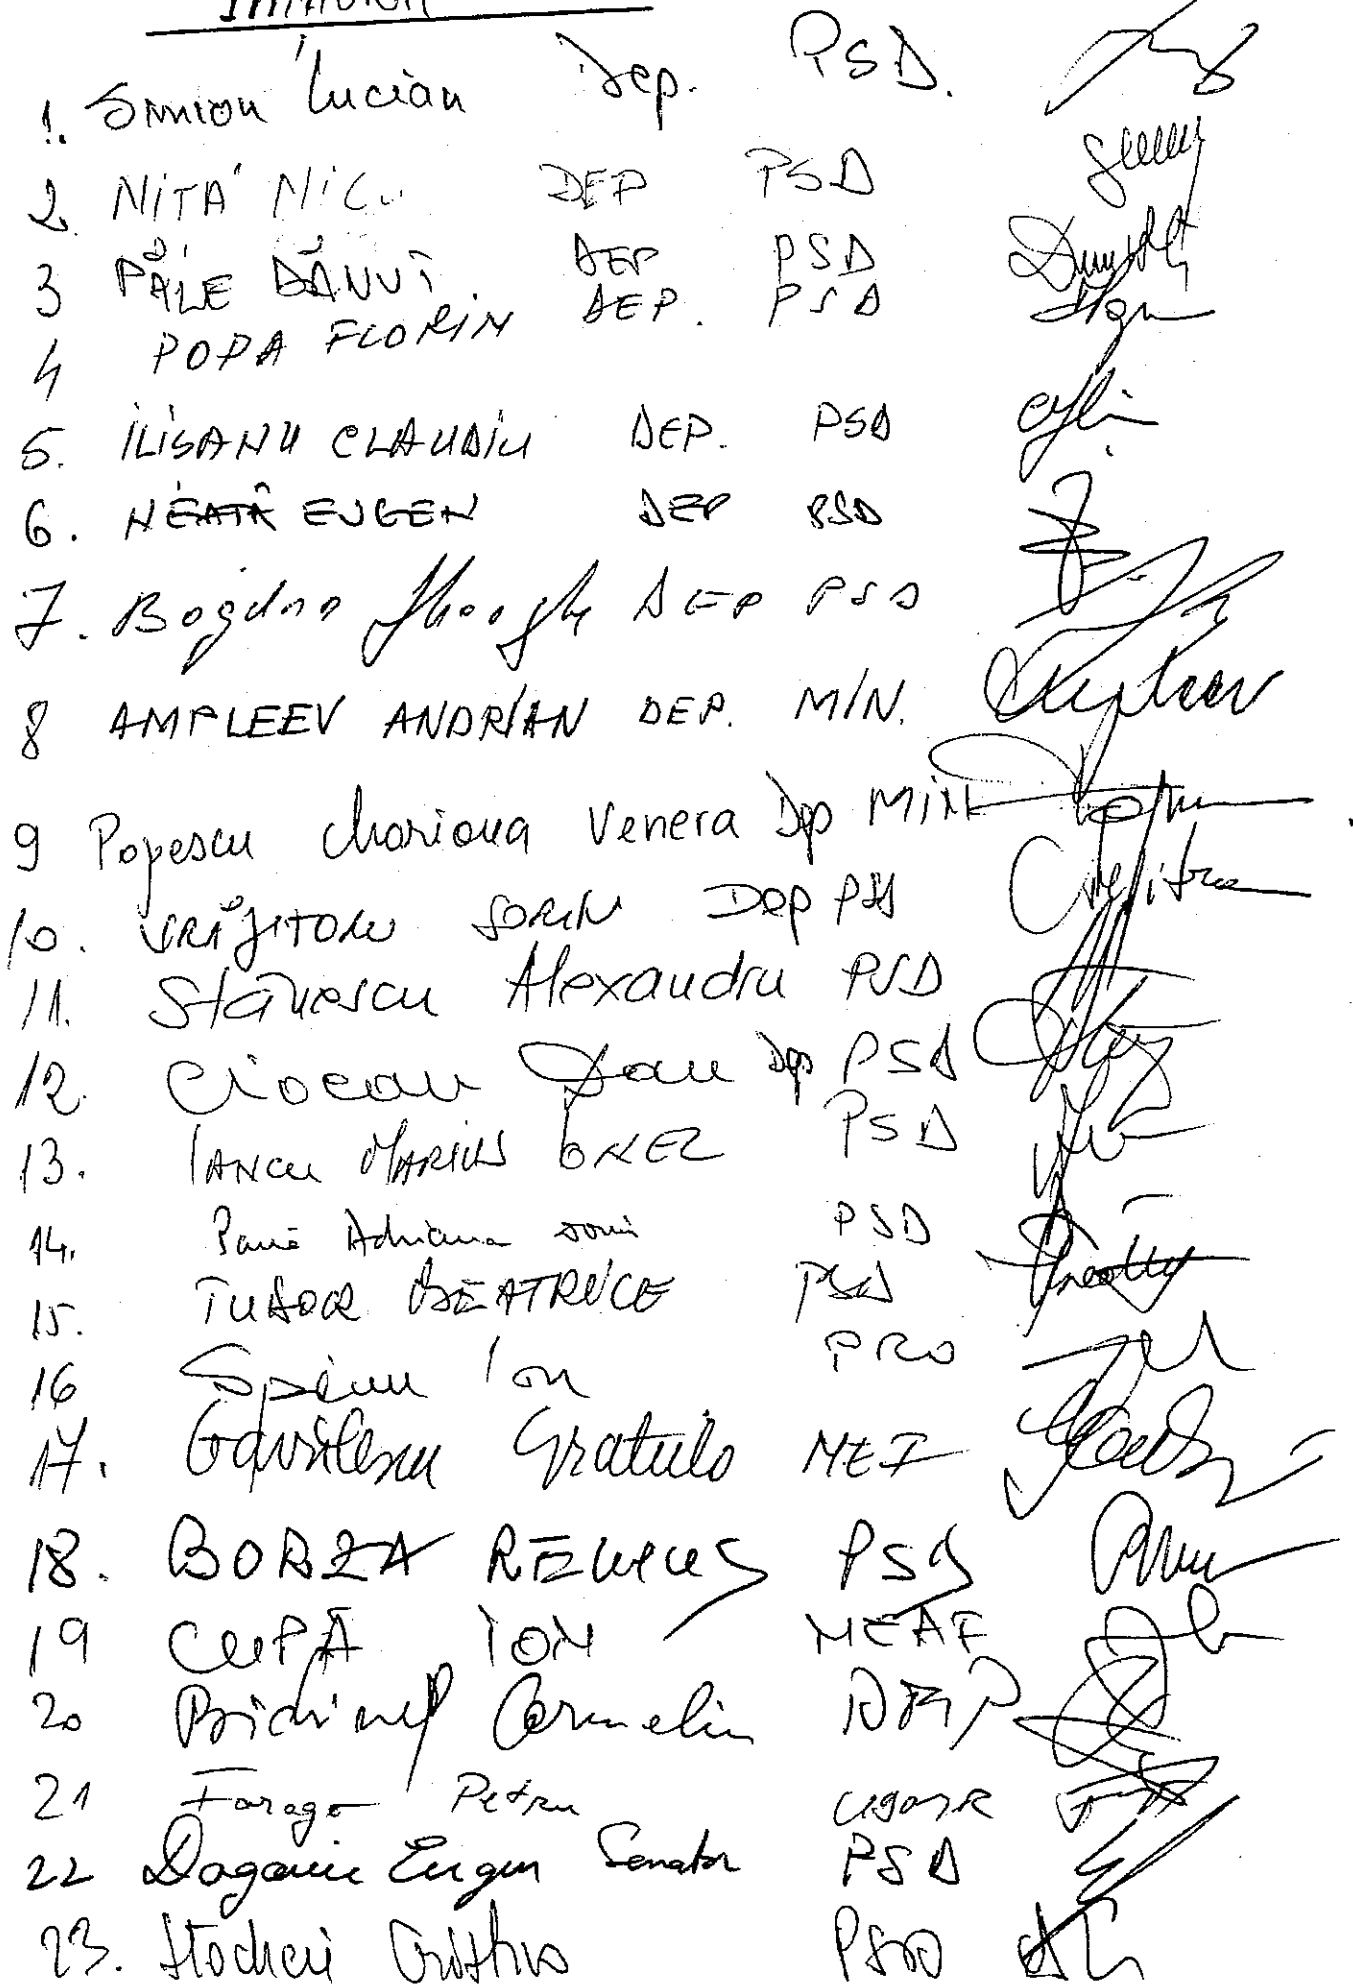 1. Simion Lucian Dep. PSD.
2. NIȚĂ NICU DEP PSD
3 PĂLE DĂNUȚ DEP PSD
4 POPA FLORIN DEP. PSD
5. ILIȘANU CLAUDIU DEP. PSD
6. NEAȚĂ EUGEN DEP PSD
7. Bogdan Gheorghe DEP PSD
8 AMPLEEV ANDRIAN DEP. MIN.
9 Popescu Mariana Venera Dp MIN
10. VRĂJITORU SORIN Dep PSD
11. Stănescu Alexandru PSD
12. Ciocan Dan Dp PSD
13. IANCU MARIUS IONEL PSD
14. Pană Adriana Doni PSD
15. TUDOR BEATRICE PSD
16 Spînu Ion PRO
17. Gavrilescu Grațiela
18. BORZA REMUS PSD
19 CUPĂ ION NEAF
20 Carmelin DEP
21 Farago Petru UDMR
22 Dogariu Eugen Senator PSD
23. PSD